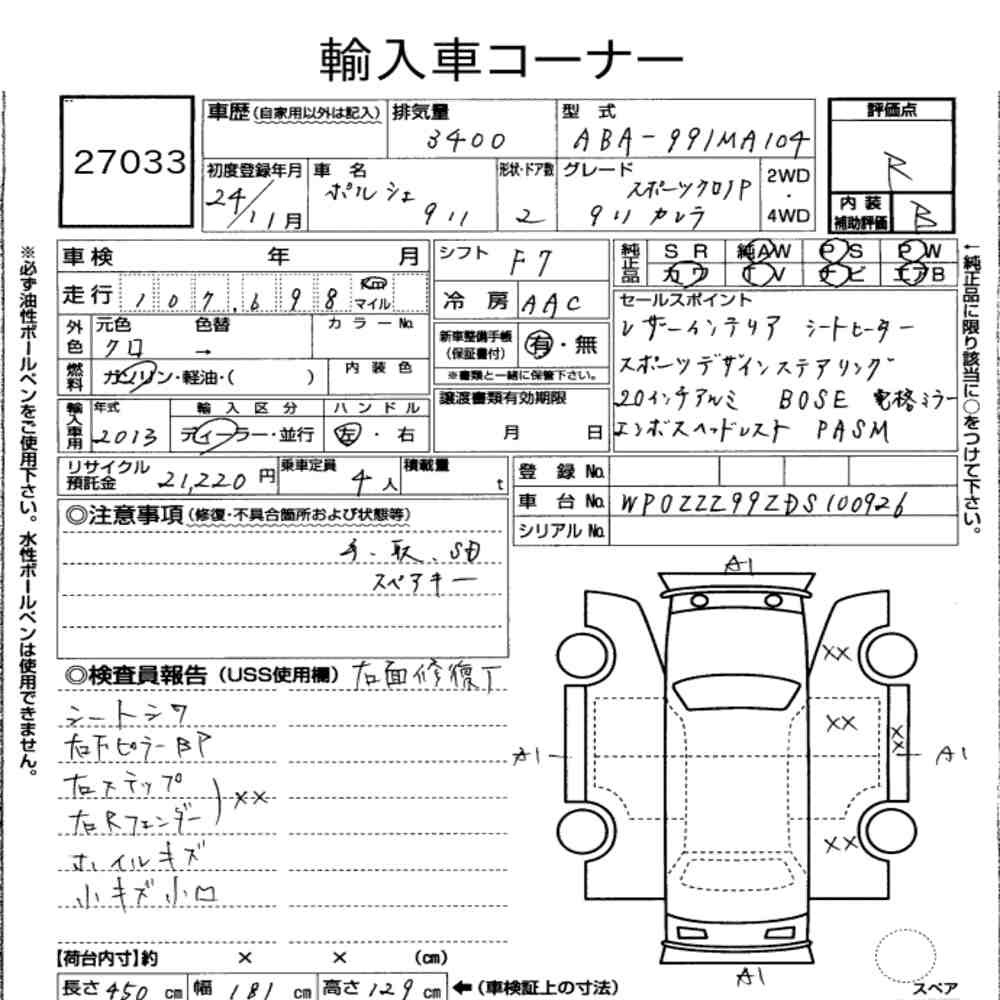 輸入車コーナー
27033
車歴(自家用以外は記入) 排気量 3400 型式 ABA-991MA104
評価点 R
初度登録年月 24/11月 車名 ポルシェ 911 形状・ドア数 2 グレード スポーツクロノP 911カレラ 2WD・4WD
内装補助評価 B
車検 年 月
走行 107,698 Km マイル
外色 元色 クロ 色替 → カラーNo.
燃料 ガソリン・軽油・( ) 内装色
輸入車用 年式 2013 輸入区分 ディーラー・並行 ハンドル 左・右
シフト F7
冷房 AAC
新車整備手帳(保証書付) 有・無
※書類と一緒に保管下さい。
譲渡書類有効期限
月 日
純正品 SR 純AW PS PW
カワ TV ナビ エアB
セールスポイント
レザーインテリア シートヒーター
スポーツデザインステアリング
20インチアルミ BOSE 電格ミラー
エンボスヘッドレスト PASM
リサイクル預託金 21,220円 乗車定員 4人 積載量 t
登録No.
車台No. WP0ZZZ99ZDS100926
シリアルNo.
◎注意事項(修復・不具合箇所および状態等)
手、取、SD
スペアキー
◎検査員報告(USS使用欄) 右面修復丁
シートシワ
右下ピラーBP
右ステップ
右Rフェンダー ) ××
ホイルキズ
小キズ小凹
A1
××
××
××
A1
A1
××
A1
スペア
【荷台内寸】約 × × (cm)
長さ 450 cm 幅 181 cm 高さ 129 cm ←(車検証上の寸法)
※必ず油性ボールペンをご使用下さい。水性ボールペンは使用できません。
←純正品に限り該当に○をつけて下さい。